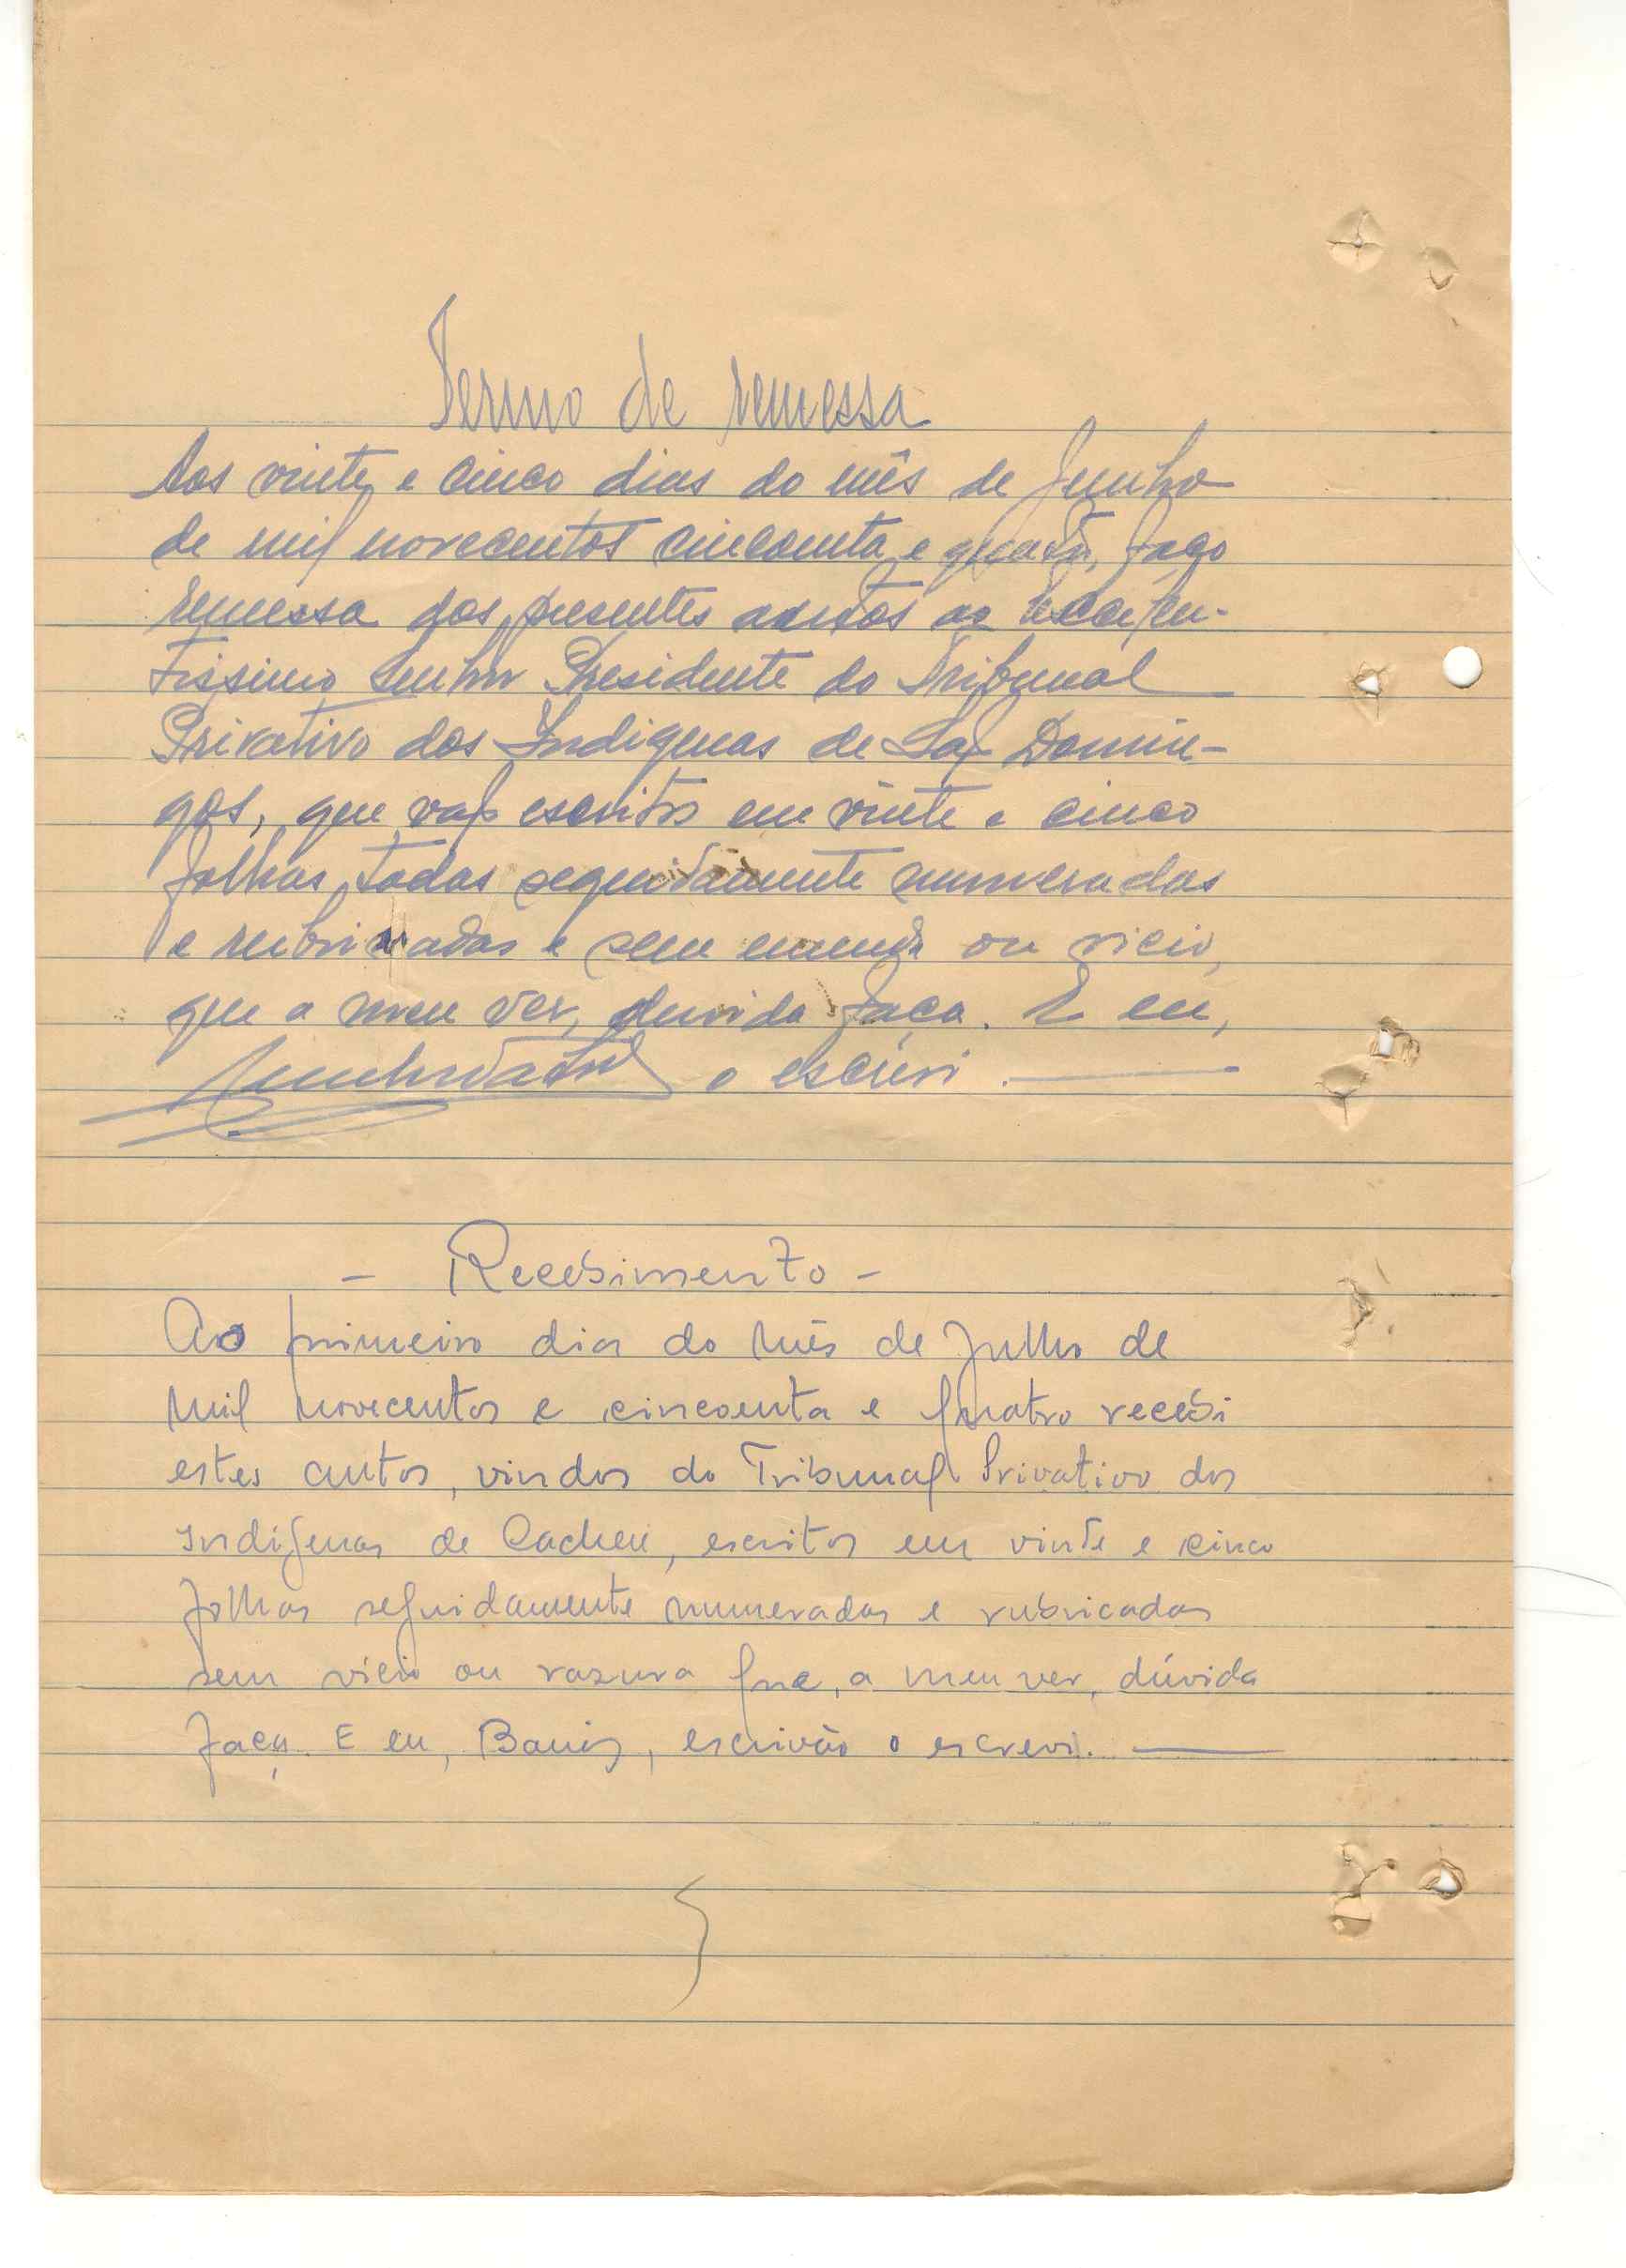 Termo de remessa
Aos vinte e cinco dias do mês de Junho
de mil novecentos cincoenta e quatro, faço
remessa dos presentes autos ao Excelen-
tissimo Senhor Presidente do Tribunal
Privativo dos Indigenas de São Domin-
gos, que vão escritos em vinte e cinco
folhas, todas seguidamente numeradas
e rubricadas e sem emenda ou vicio,
que a meu ver, duvida faça. E eu,
o escrevi.
- Recebimento -
Ao primeiro dia do mês de Julho de
mil novecentos e cincoenta e quatro recebi
estes autos, vindos do Tribunal Privativo dos
Indigenas de Cacheu, escritos em vinte e cinco
folhas seguidamente numeradas e rubricadas
sem vício ou razura que, a meu ver, dúvida
faça. E eu, escrivão o escrevi.